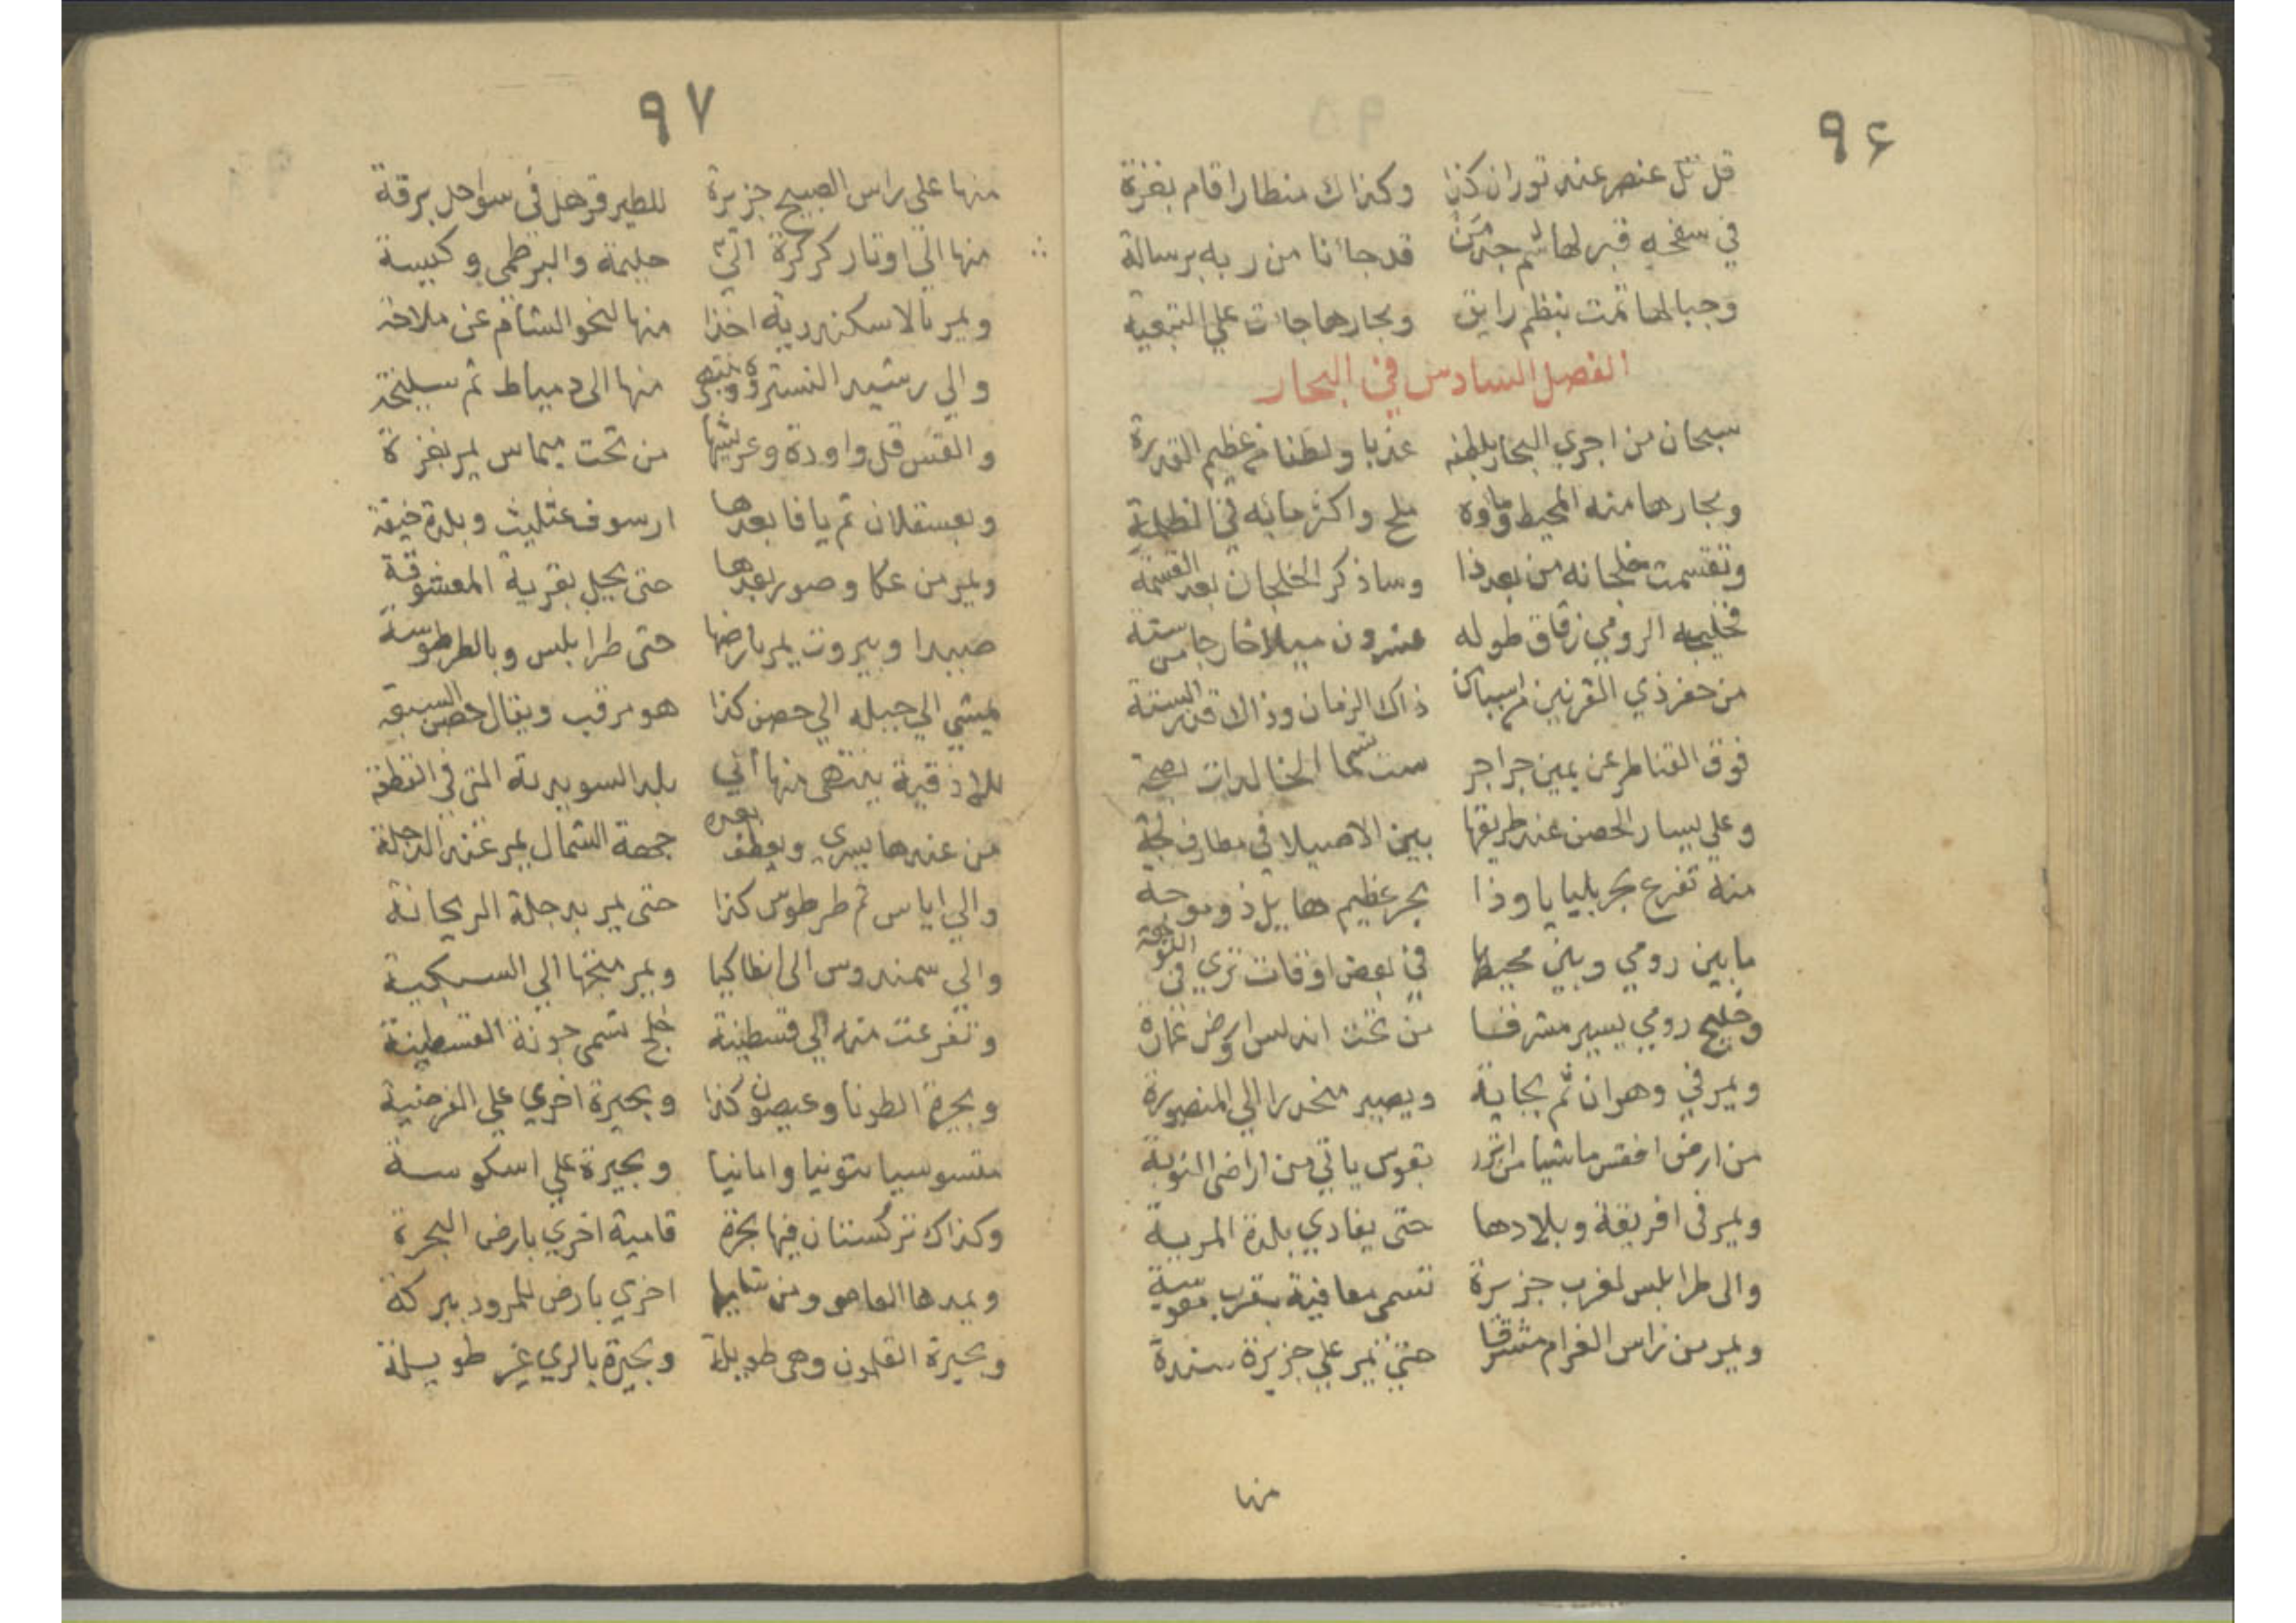 ٩٤
قل تل عنصر عند توران كذا وكذاك منطارا قام بغزة
في سفحه قبر لهاشم جد من قد جاءنا من ربه برسالة
وجبالها تمت بنظم رايق وبحارها جات على التبعية
الفصل السادس في البحار
سبحان من اجري البحار بلطفه عذبا ولطفا من عظيم القدرة
وبحارها منه المحيط وماوه ملح واكثر مائه في الظلمة
وتقسمت خلجانه من بعد ذا وساذكر الخلجان بعد القسمة
فخليجه الرومي زقاق طوله عشرون ميلا خارجا من ستة
من حفر ذي القرنين ذاك الزمان وذاك قدر الستة
فوق القناطر عن يمين جزاجر ست تسما الخالدات بصحة
وعلي يسار الحصن عند طريقها بين الاصيلا في مطارف لجة
منه تفرع بحر بليايا وذا بحر عظيم هايل ذو موجة
ما بين رومي وبين محيطها في بعض اوقات تري في
وخليج رومي يسير مشرفا من تحت اندلس وارض غمارة
ويمر في وهران ثم بجاية ويصير منحدرا الي المنصورة
من ارض افقس ماشيا من بقوس ياتي من اراضى النوبة
ويمر فى افريقة وبلادها حتى يفادي بلدة المرية
والى طرابلس لغرب جزيرة تسمى معافية بقرب
ويمر من راس الغرام مشرقا حتى تمر على جزيرة سندة
منها
٩٧
منها على راس الصبيح جزيرة للطير قر هل فى سواحل برقة
منها الي اوتار كركرة التي حليمة والبرطمي وكبيسة
ويمر بالاسكندرية اخذا منها لنحو الشام عن ملاحة
والي رشيد النستروه منها الى دمياط ثم سلينحة
والقس قل واودة وعريشها من تحت ميماس يمر بغزة
وبعسقلان ثم يافا بعدها ارسوف عثليث وبلدة حيفة
ويمر من عكا وصور بعدها حتى يحل بقرية المعشوقة
صيدا وبيروت يمر بارضها حتى طرابلس وبالطرطوسة
يمشي الي جبله الي حصن كذا هو مرقب ويقال حصن السبعة
للاذقية ينتهى منها أتي بلد السويدية التي في النطفة
من عندها يسري ويعطف بعده جهة الشمال يمر عند الدجلة
والي اياس ثم طرطوس كذا حتى يمر بدجلة الريحانة
والي سمندروس الى انطاكيا ويمر منتجها الي السبكية
وتفرعت منه الي قسطينة خلج تسمى جونة القسطينة
وبحيرة الطرنا وعيصون كذا وبحيرة اخري علي الفرضية
متسوسيا متونيا وامانيا وبحيرة علي اسكوسة
وكذاك تركستان فيها بحرة قامية اخري بارض البحرة
ويمدها العاصو ومن اخري بارض للمرود ببركة
وبحيرة القلدون وهى طويلة وبحيرة بالري غير طويلة